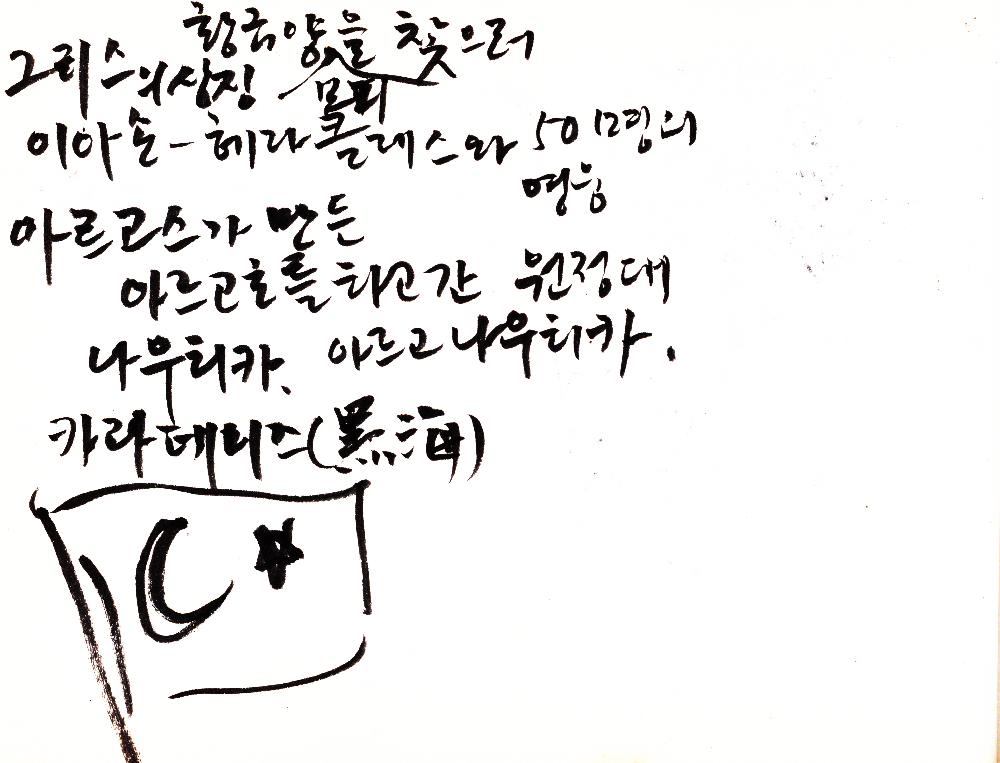 황금양을 찾으러
그리스의 상징 모피
이아손-헤라클레스와 50명의
영웅
아르고스가 만든
아르고호를 타고 간 원정대
나우티카. 아르고나우티카.
카라데니즈(黑海)